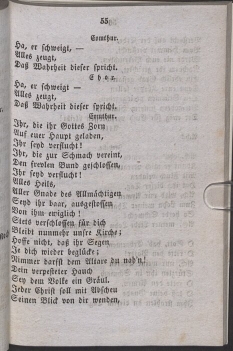 55
Comthur.
Ha, er schweigt, —
Alles zeugt,
Daß Wahrheit dieser spricht.
Chor.
Ha, er schweigt, —
Alles zeugt,
Daß Wahrheit dieser spricht.
Comthur.
Ihr, die ihr Gottes Zorn
Auf euer Haupt geladen,
Ihr seyd verflucht!
Ihr, die zur Schmach vereint,
Den frevlen Bund geschlossen,
Ihr seyd verflucht!
Alles Heils,
Aller Gnade des Allmächtigen
Seyd ihr baar, ausgestoßen
Von ihm ewiglich!
Stets verschlossen für dich
Bleibt nunmehr unsre Kirche;
Hoffe nicht, daß ihr Segen
Je dich wieder beglücke;
Nimmer darfst dem Altare du nah'n!
Dein verpesteter Hauch
Sey dem Volke ein Gräul.
Jeder Christ soll mit Abscheu
Seinen Blick von dir wenden,